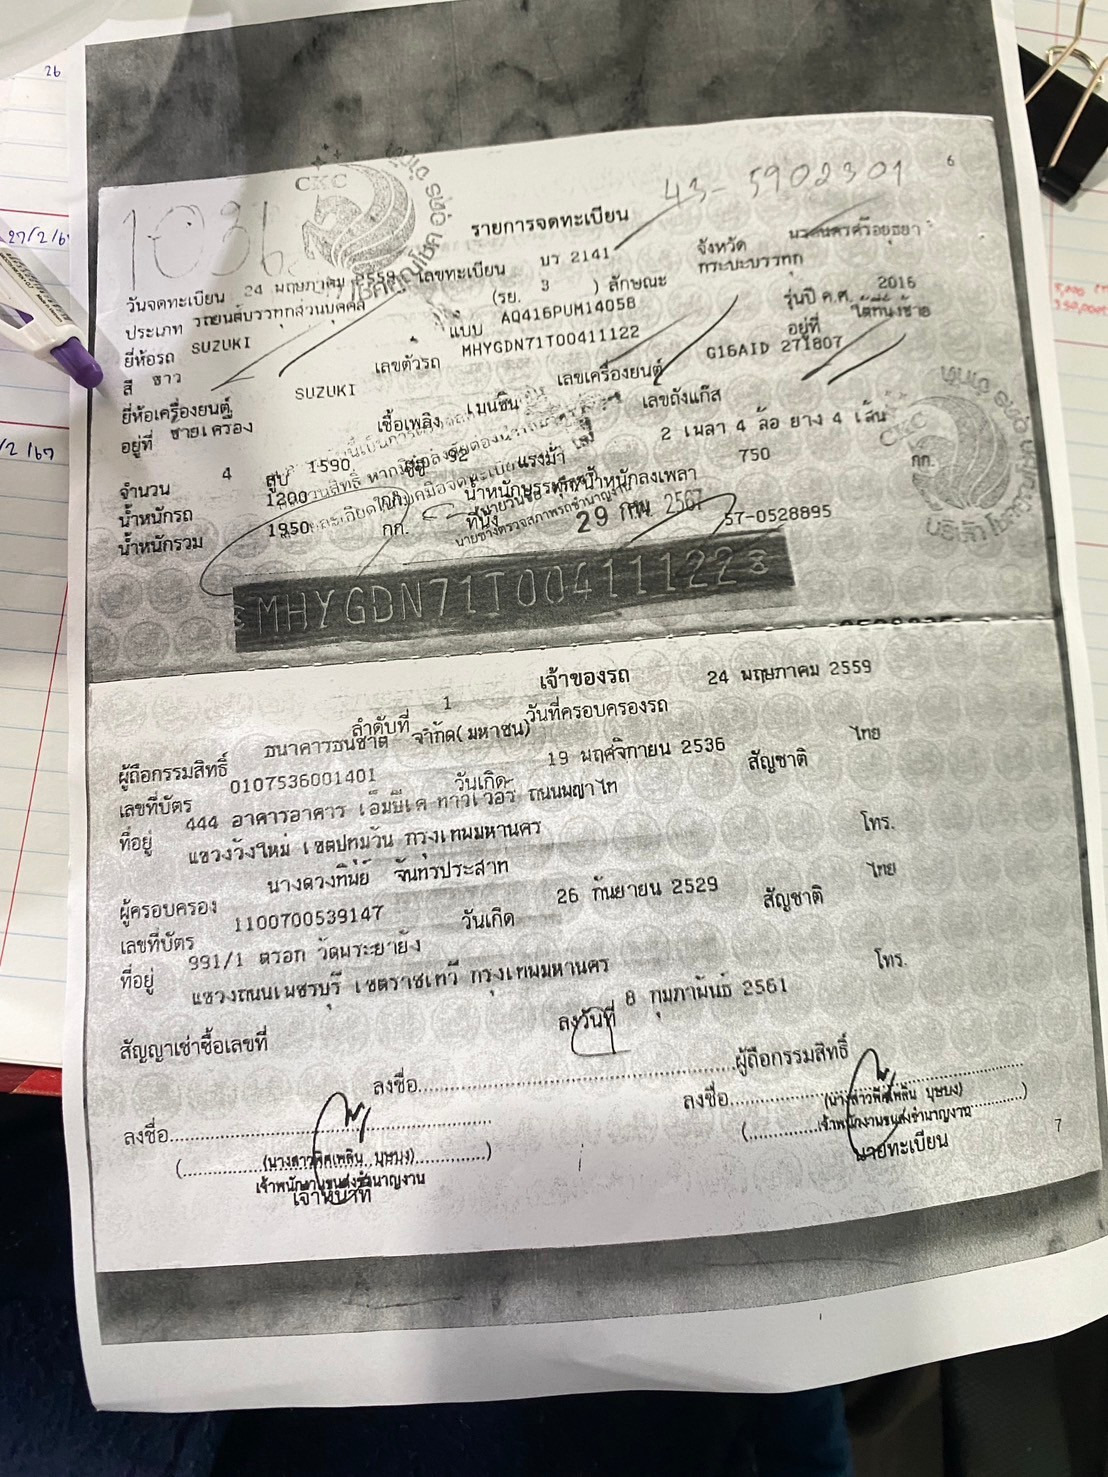 26
27/2/67
2/67
6
1036
CKC
43-5902301
รายการจดทะเบียน
วันจดทะเบียน 24 พฤษภาคม 2559 เลขทะเบียน บร 2141 จังหวัด พระนครศรีอยุธยา
ประเภท รถยนต์บรรทุกส่วนบุคคล (รย. 3 ) ลักษณะ กระบะบรรทุก
ยี่ห้อรถ SUZUKI แบบ AQ416PUM14058 รุ่นปี ค.ศ. 2016
สี ขาว เลขตัวรถ MHYGDN71T00411122 อยู่ที่ ใต้ที่นั่งซ้าย
ยี่ห้อเครื่องยนต์ SUZUKI เลขเครื่องยนต์ G16AID 271807
อยู่ที่ ซ้ายเครื่อง เชื้อเพลิง เบนซิน เลขถังแก๊ส
จำนวน 4 สูบ 1590 ซีซี 92 แรงม้า 2 เพลา 4 ล้อ ยาง 4 เส้น
น้ำหนักรถ 1200 กก. น้ำหนักบรรทุก/น้ำหนักลงเพลา 750 กก.
น้ำหนักรวม 1950 กก. ที่นั่ง
29 กพ. 2567
57-0528895
MHYGDN71T00411122
CKC
เจ้าของรถ
ลำดับที่ 1 วันที่ครอบครองรถ 24 พฤษภาคม 2559
ผู้ถือกรรมสิทธิ์ ธนาคารธนชาต จำกัด(มหาชน)
เลขที่บัตร 0107536001401 วันเกิด 19 พฤศจิกายน 2536 สัญชาติ ไทย
ที่อยู่ 444 อาคารอาคาร เอ็มบีเค ทาวเวอร์ ถนนพญาไท
แขวงวังใหม่ เขตปทุมวัน กรุงเทพมหานคร โทร.
ผู้ครอบครอง นางดวงทิพย์ จันทรประสาท
เลขที่บัตร 1100700539147 วันเกิด 26 กันยายน 2529 สัญชาติ ไทย
ที่อยู่ 991/1 ตรอก วัดพระยายัง
แขวงถนนเพชรบุรี เขตราชเทวี กรุงเทพมหานคร โทร.
สัญญาเช่าซื้อเลขที่ ลงวันที่ 8 กุมภาพันธ์ 2561
ลงชื่อ ผู้ถือกรรมสิทธิ์
ลงชื่อ ลงชื่อ
(นางสาวพิศเพลิน บุษบง) (นางสาวพิศเพลิน บุษบง)
เจ้าพนักงานขนส่งชำนาญงาน เจ้าพนักงานขนส่งชำนาญงาน
เจ้าหน้าที่ นายทะเบียน
7